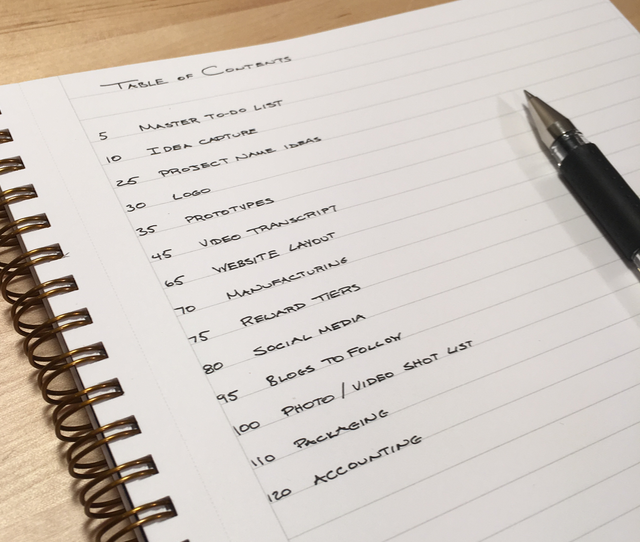 TABLE OF CONTENTS
5 MASTER TO-DO LIST
10 IDEA CAPTURE
25 PROJECT NAME IDEAS
30 LOGO
35 PROTOTYPES
45 VIDEO TRANSCRIPT
65 WEBSITE LAYOUT
70 MANUFACTURING
75 REWARD TIERS
80 SOCIAL MEDIA
95 BLOGS TO FOLLOW
100 PHOTO / VIDEO SHOT LIST
110 PACKAGING
120 ACCOUNTING